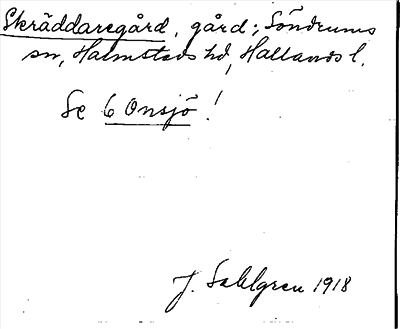 Skräddaregård, gård; Söndrums
sn, Halmstads hd, Hallands l.
Se 6 Onsjö!
J. Sahlgren 1918